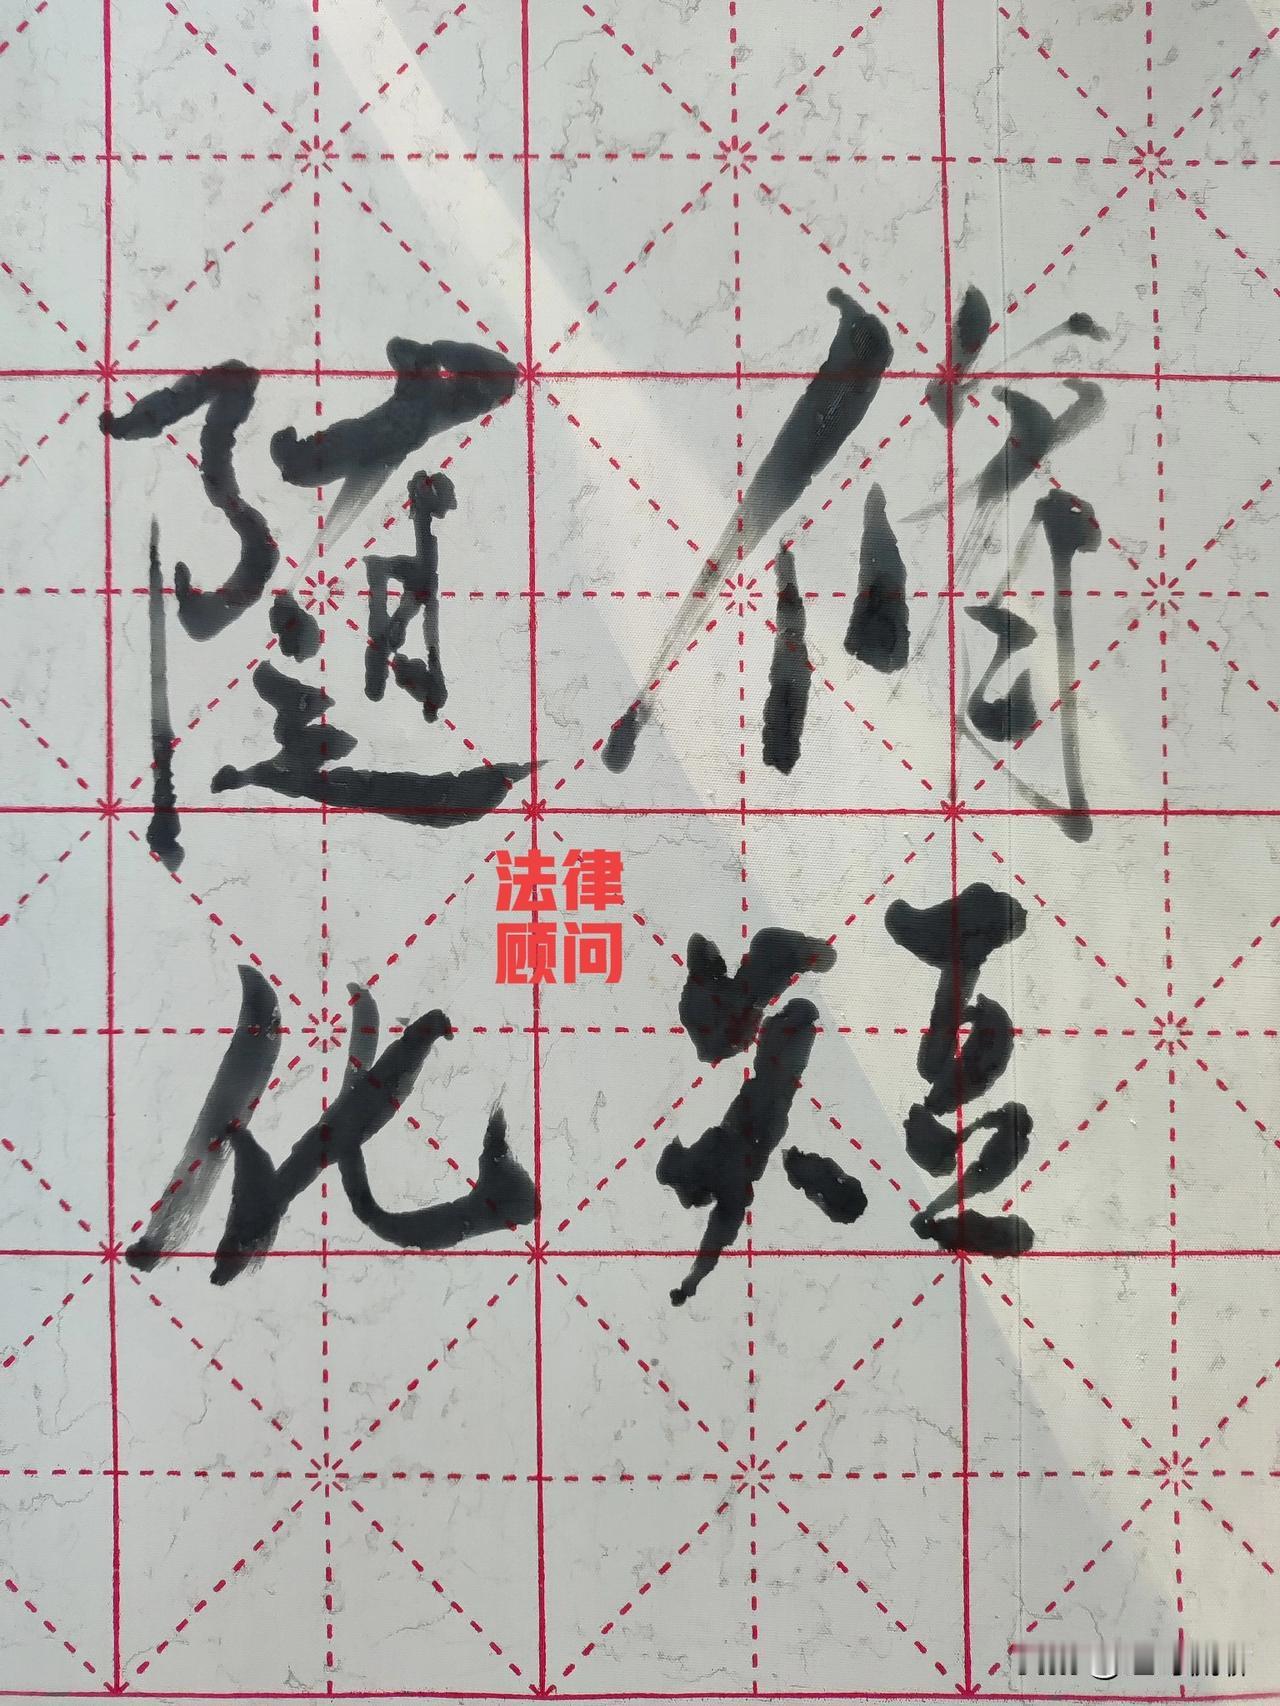 脩短
随化
法律
顾问